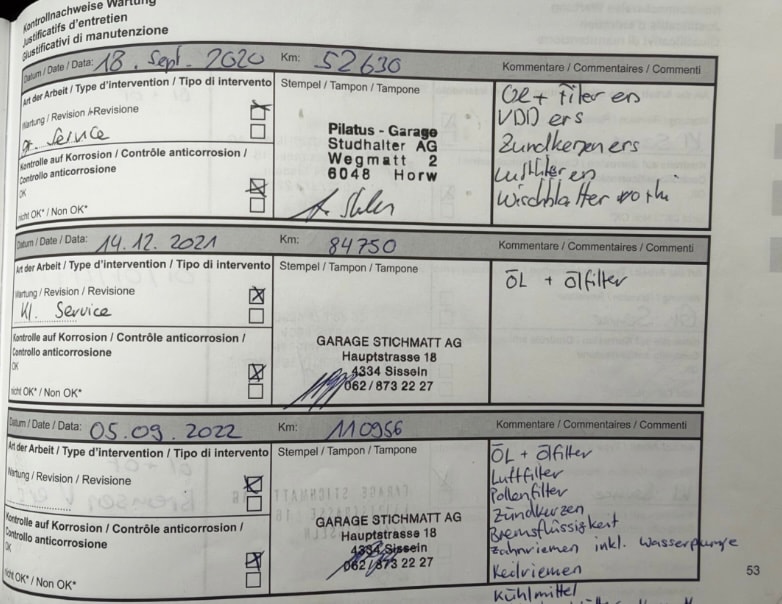 Kontrollnachweise Wartung
Justificatifs d'entretien
Giustificativi di manutenzione
Datum / Date / Data: 18. Sept. 2020 Km: 52630 Kommentare / Commentaires / Commenti
Art der Arbeit / Type d'intervention / Tipo di intervento Stempel / Tampon / Tampone
Wartung / Revision / Revisione
gr. Service
Kontrolle auf Korrosion / Contrôle anticorrosion /
Controllo anticorrosione
OK
nicht OK* / Non OK*
Pilatus - Garage
Studhalter AG
Wegmatt 2
6048 Horw
ÖL + Filter ers
VDD ers
Zündkerzen ers
Luftfilter ers
Wischblätter
Datum / Date / Data: 14.12.2021 Km: 84750 Kommentare / Commentaires / Commenti
Art der Arbeit / Type d'intervention / Tipo di intervento Stempel / Tampon / Tampone
Wartung / Revision / Revisione
Kl. Service
Kontrolle auf Korrosion / Contrôle anticorrosion /
Controllo anticorrosione
OK
nicht OK* / Non OK*
GARAGE STICHMATT AG
Hauptstrasse 18
4334 Sisseln
062 / 873 22 27
ÖL + Ölfilter
Datum / Date / Data: 05.09.2022 Km: 110956 Kommentare / Commentaires / Commenti
Art der Arbeit / Type d'intervention / Tipo di intervento Stempel / Tampon / Tampone
Wartung / Revision / Revisione
Kontrolle auf Korrosion / Contrôle anticorrosion /
Controllo anticorrosione
OK
nicht OK* / Non OK*
GARAGE STICHMATT AG
Hauptstrasse 18
4334 Sisseln
062 / 873 22 27
ÖL + Ölfilter
Luftfilter
Pollenfilter
Zündkerzen
Bremsflüssigkeit
Zahnriemen inkl. Wasserpumpe
Keilriemen
Kühlmittel
53